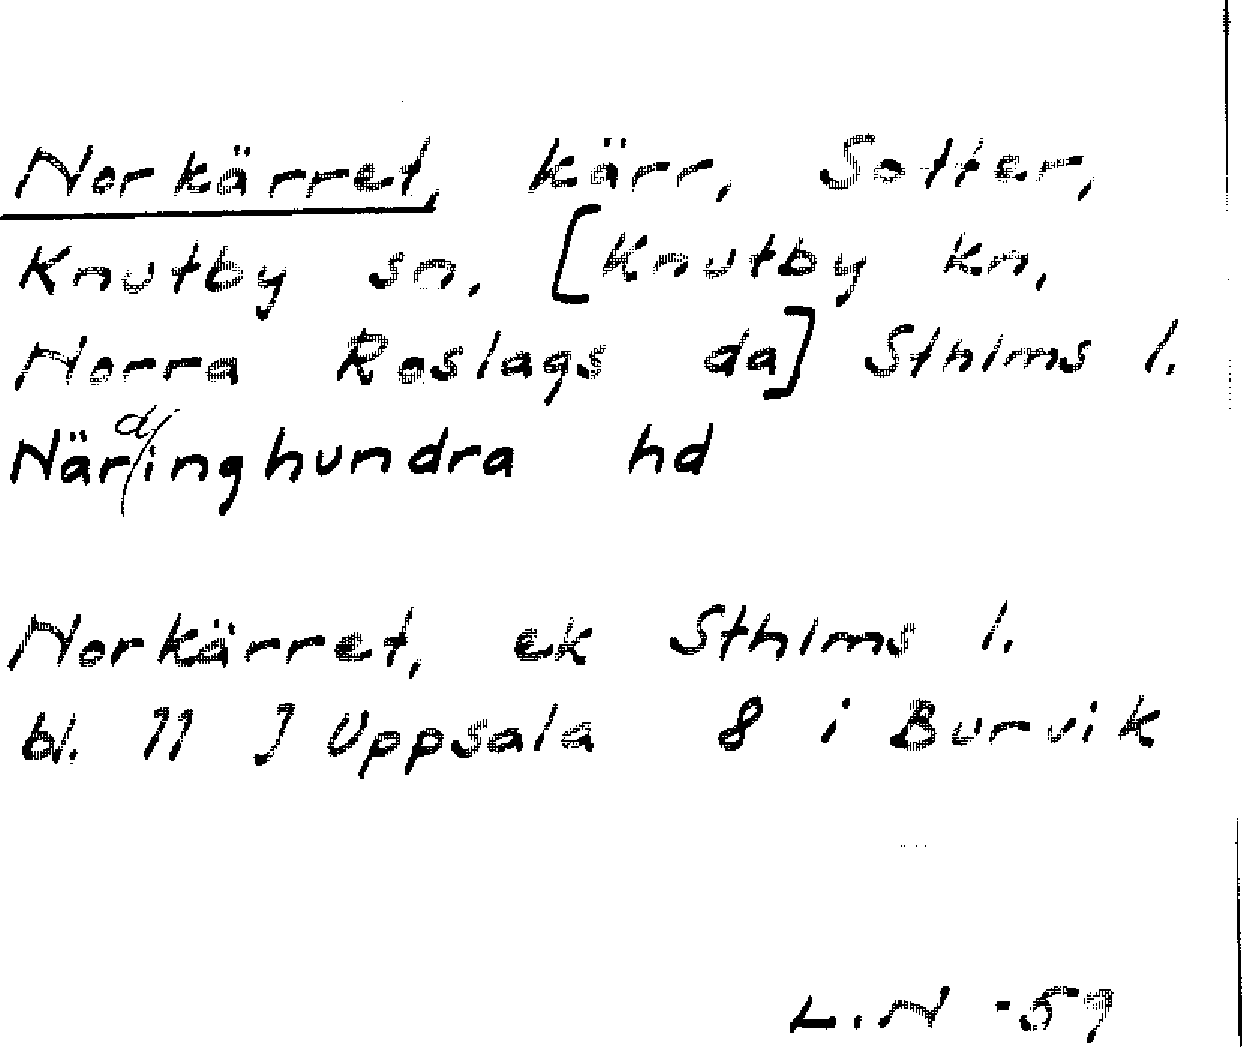 Norkärret, kärr, Sotter,
Knutby sn. [Knutby kn,
Norra Roslags da] Sthlms l.
Närdinghundra hd
Norkärret, ek Sthlms l.
bl. 11 J Uppsala 8 i Burvik
L.N -59